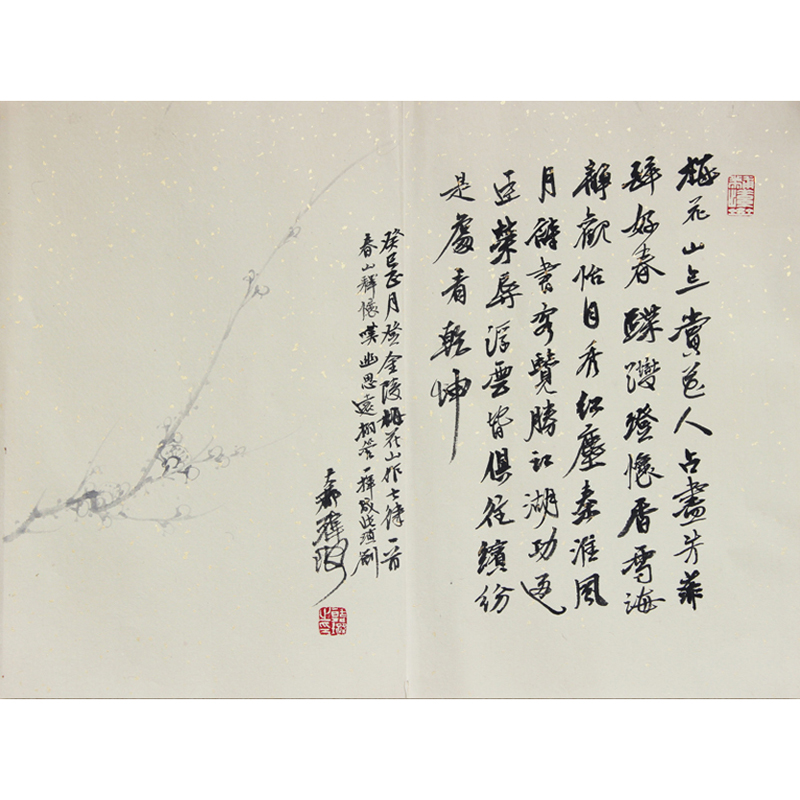 梅花山上賞花人占盡芳菲
醉好春蹀躞澄懷香雪海
靜觀怡目秀紅塵秦淮風
月醉書客覽勝江湖功
臣榮辱浮雲皆俱往繽紛
是處看乾坤
癸巳正月登金陵梅花山作七律一首
春山釋懷嘆幽思遠管一揮成此